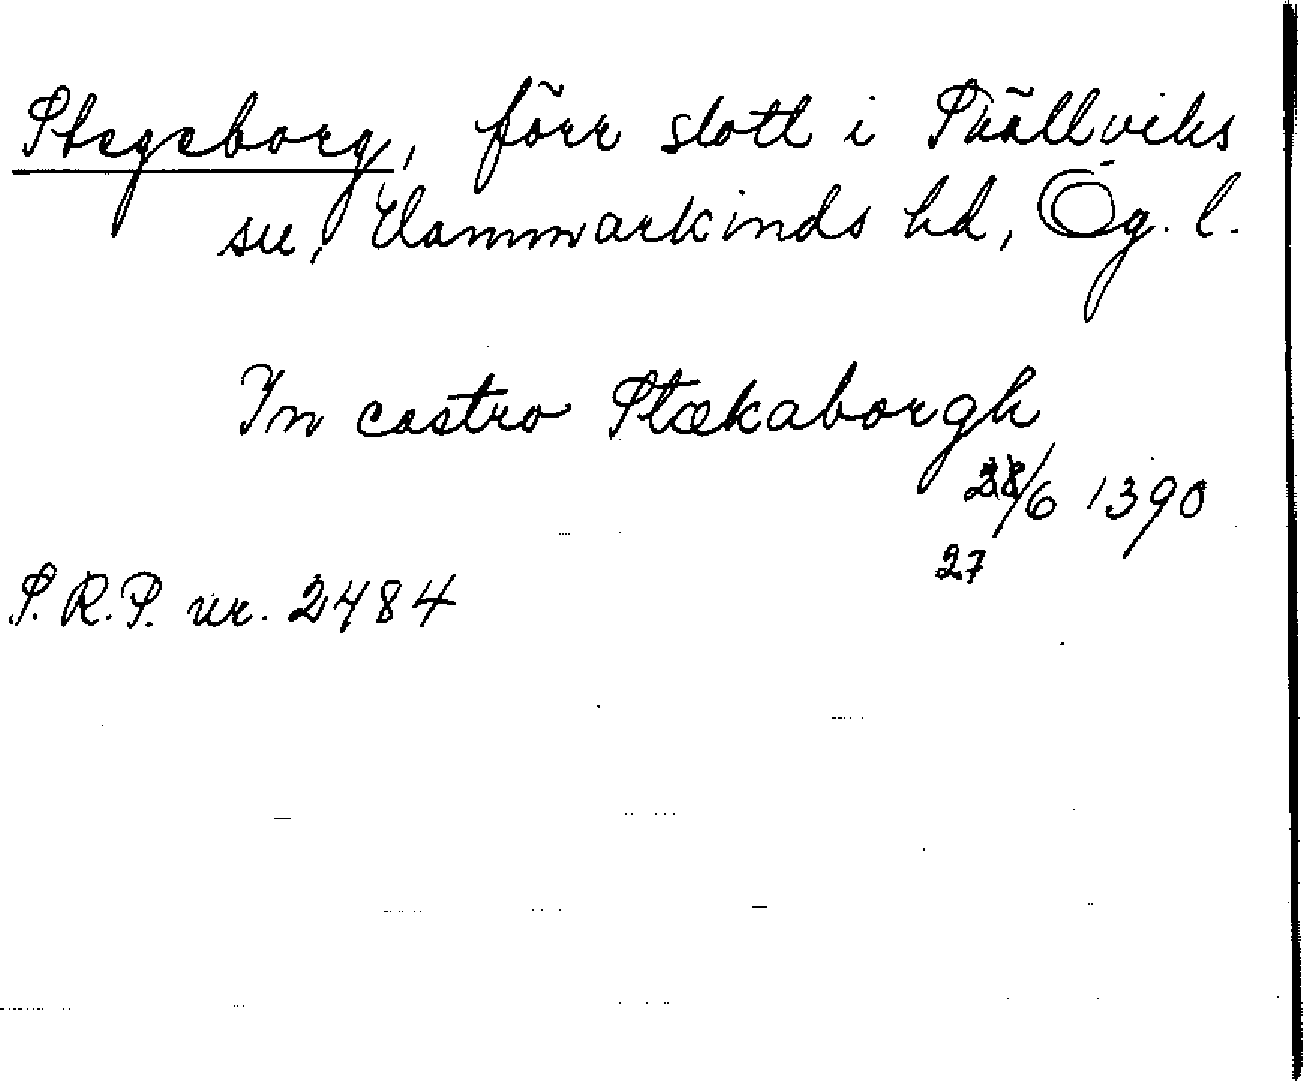 Stegeborg, förr slott i Skällviks
sn, Hammarkinds hd, Ög. l.
In castro Stækaborgh
28/6 1390
27
S.R.P. nr. 2484